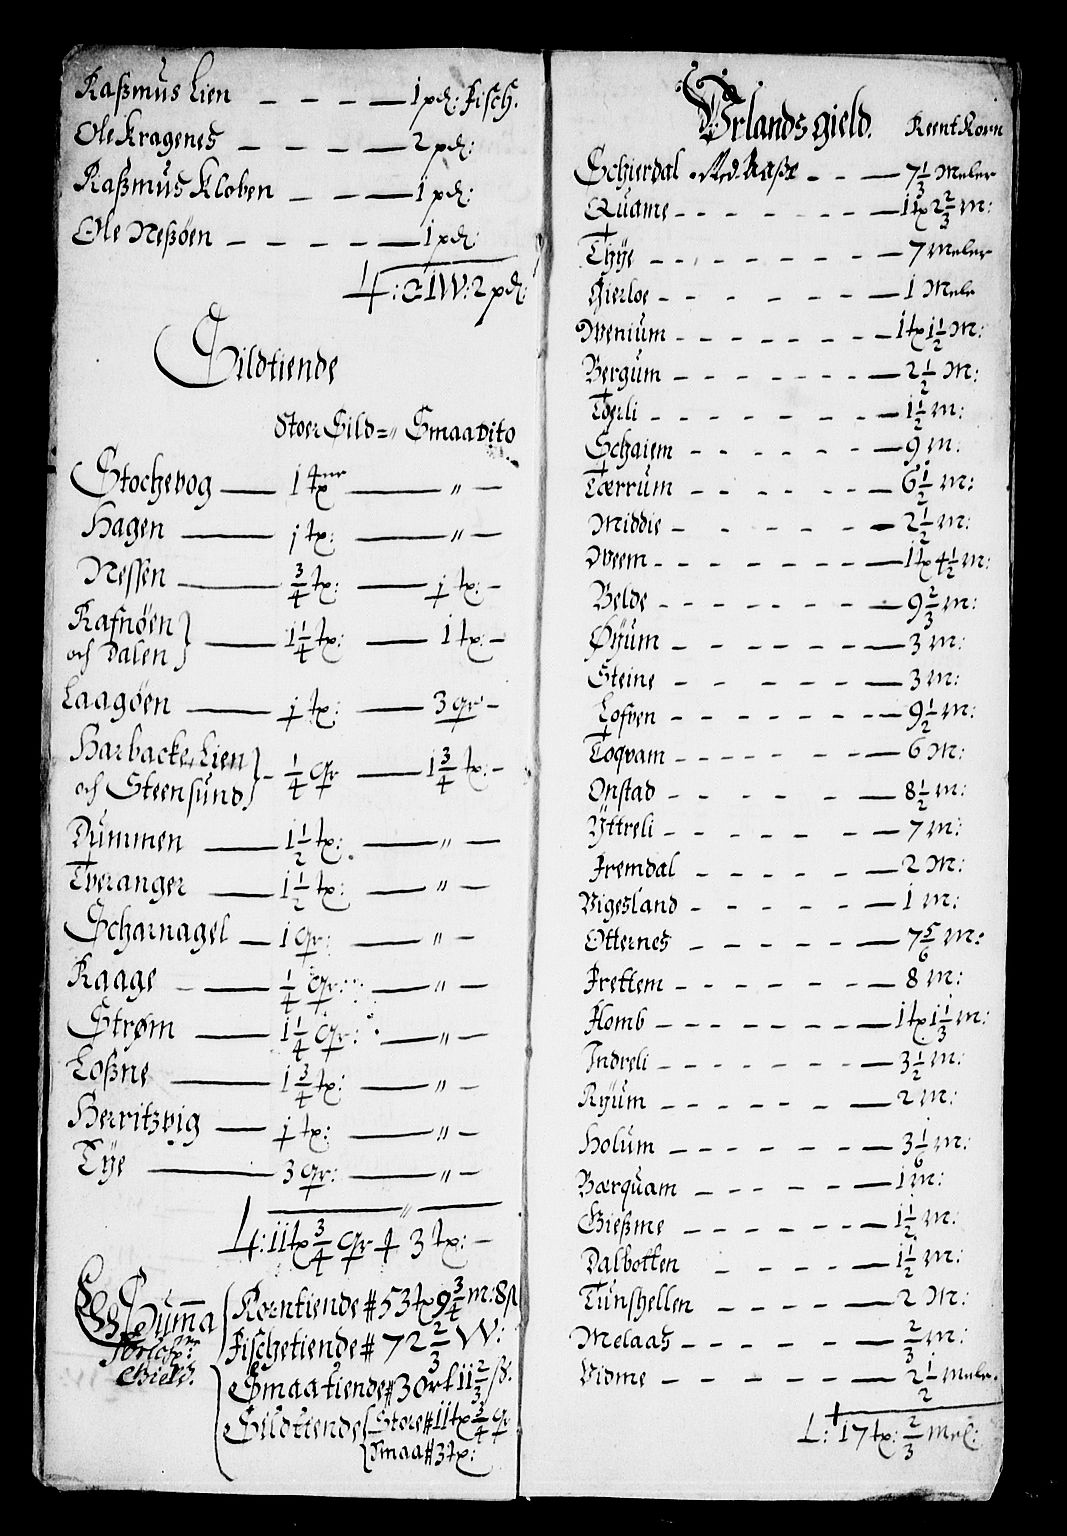 Raßmus Lien – – – – 1 pd: Fisch.
Ole Kragenes – – – – 2 pd:
Raßmus Kloben – – – 1 pd:
Ole Neßøen – – – – 1 pd:
L: 21 W: 2 pd:
Sildtiende
Stoer Sild = Smaa dito
Stochevog — 1 tnr — " –
Hagen — 1 tr: — " –
Nessen — 3/4 tr: — 1 tr: –
Rafnøen
och Dalen } — 1 1/4 tr: — 1 tr: –
Laagøen — 1 tr: — 3 qr –
Harbacke, Lien
och Steensund } – 1/4 qr — 1 3/4 tr: –
Dummen — 1 1/2 tr: — " –
Tveranger — 1 1/2 tr: — " –
Scharnagel — 1 qr: — " –
Kaage – — 1/4 qr: — " –
Strøm — 1 1/4 qr: — " –
Loßne — 1 3/4 tr: — " –
Herritzvig — 1 tr: — " –
Tÿe — 3 qr: — " –
L: 11 tr 3/4 qr 3 tr: –
Summa { Korntiende # 53 tr 9 3/4 m: 8
Fischetiende # 72 2/3 W:
Gield. { Smaatiende # 3 ort 11 2/3 ß.
Sildtiende { Store # 11 tr 3/4 qr
Smaa # 3 tr:
Urlands gield. Reent Korn
Schierdal – – – 7 1/3 Meler
Quame – – – 1 tr 2 2/3 m:
Thÿe – – – 7 Meler
Gierloe – – – 1 Mele
Wenium – – – 1 tr 1 1/2 m:
Bergum – – – 2 1/2 m:
Toerli – – – 1 1/2 m:
Schaiem – – – 9 m:
Tærrum – – – 6 1/2 m:
Middie – – – 2 1/2 m:
Dveem – – – 1 tr 4 1/2 m:
Belde – – – 9 2/3 m:
Øÿum – – – 3 m:
Steine – – – 3 m:
Lofven – – – 9 1/2 m:
Toqvam – – – 6 m:
Onstad – – – 8 1/2 m:
Ÿttreli – – – 7 m:
Fremdal – – – 2 m:
Vigesland – – – 1 m:
Otternes – – – 7 5/6 m:
Frettem – – – 8 m:
Flomb – – – 1 tr 1 1/3 m:
Indreli – – – 3 1/2 m:
Rÿum – – – 2 m:
Holum – – – 3 1/6 m:
Bærquam – – – 1 m:
Gießme – – – 1 1/2 m:
Dalbotten – – – 1 1/2 m:
Tunshellen – – – 2 m:
Melaas – – – 2/3 m:
Vidme – – – 2 1/2 Meler.
L: 17 tr: 2/3 Mel: